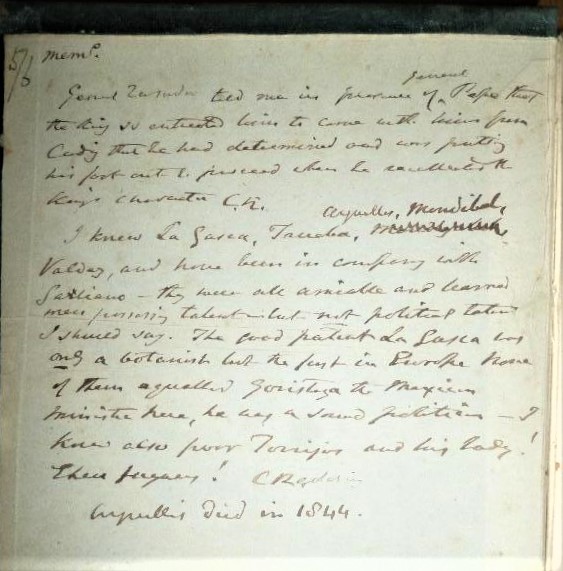 5/6
mem°.
General told me in presence of General Pepe that
the King so entreated him to come with him from
Cadiz that he had determined and was putting
his foot out to proceed when he recollected the
King's character C.R.
I knew La Gasca, Trueba, Arguelles, Mendibel,
Valdez, and have been in company with
Galiano – they were all amiable and learned
men possessing talent – but not political talent
I should say. The good patient La Gasca was
only a botanist but the first in Europe None
of them equalled Gorostiza the Mexican
Minister here, he was a sound politician – I
knew also poor Torrijos and his lady!
Eheu fugaces! C Redding
Arguellis died in 1844.